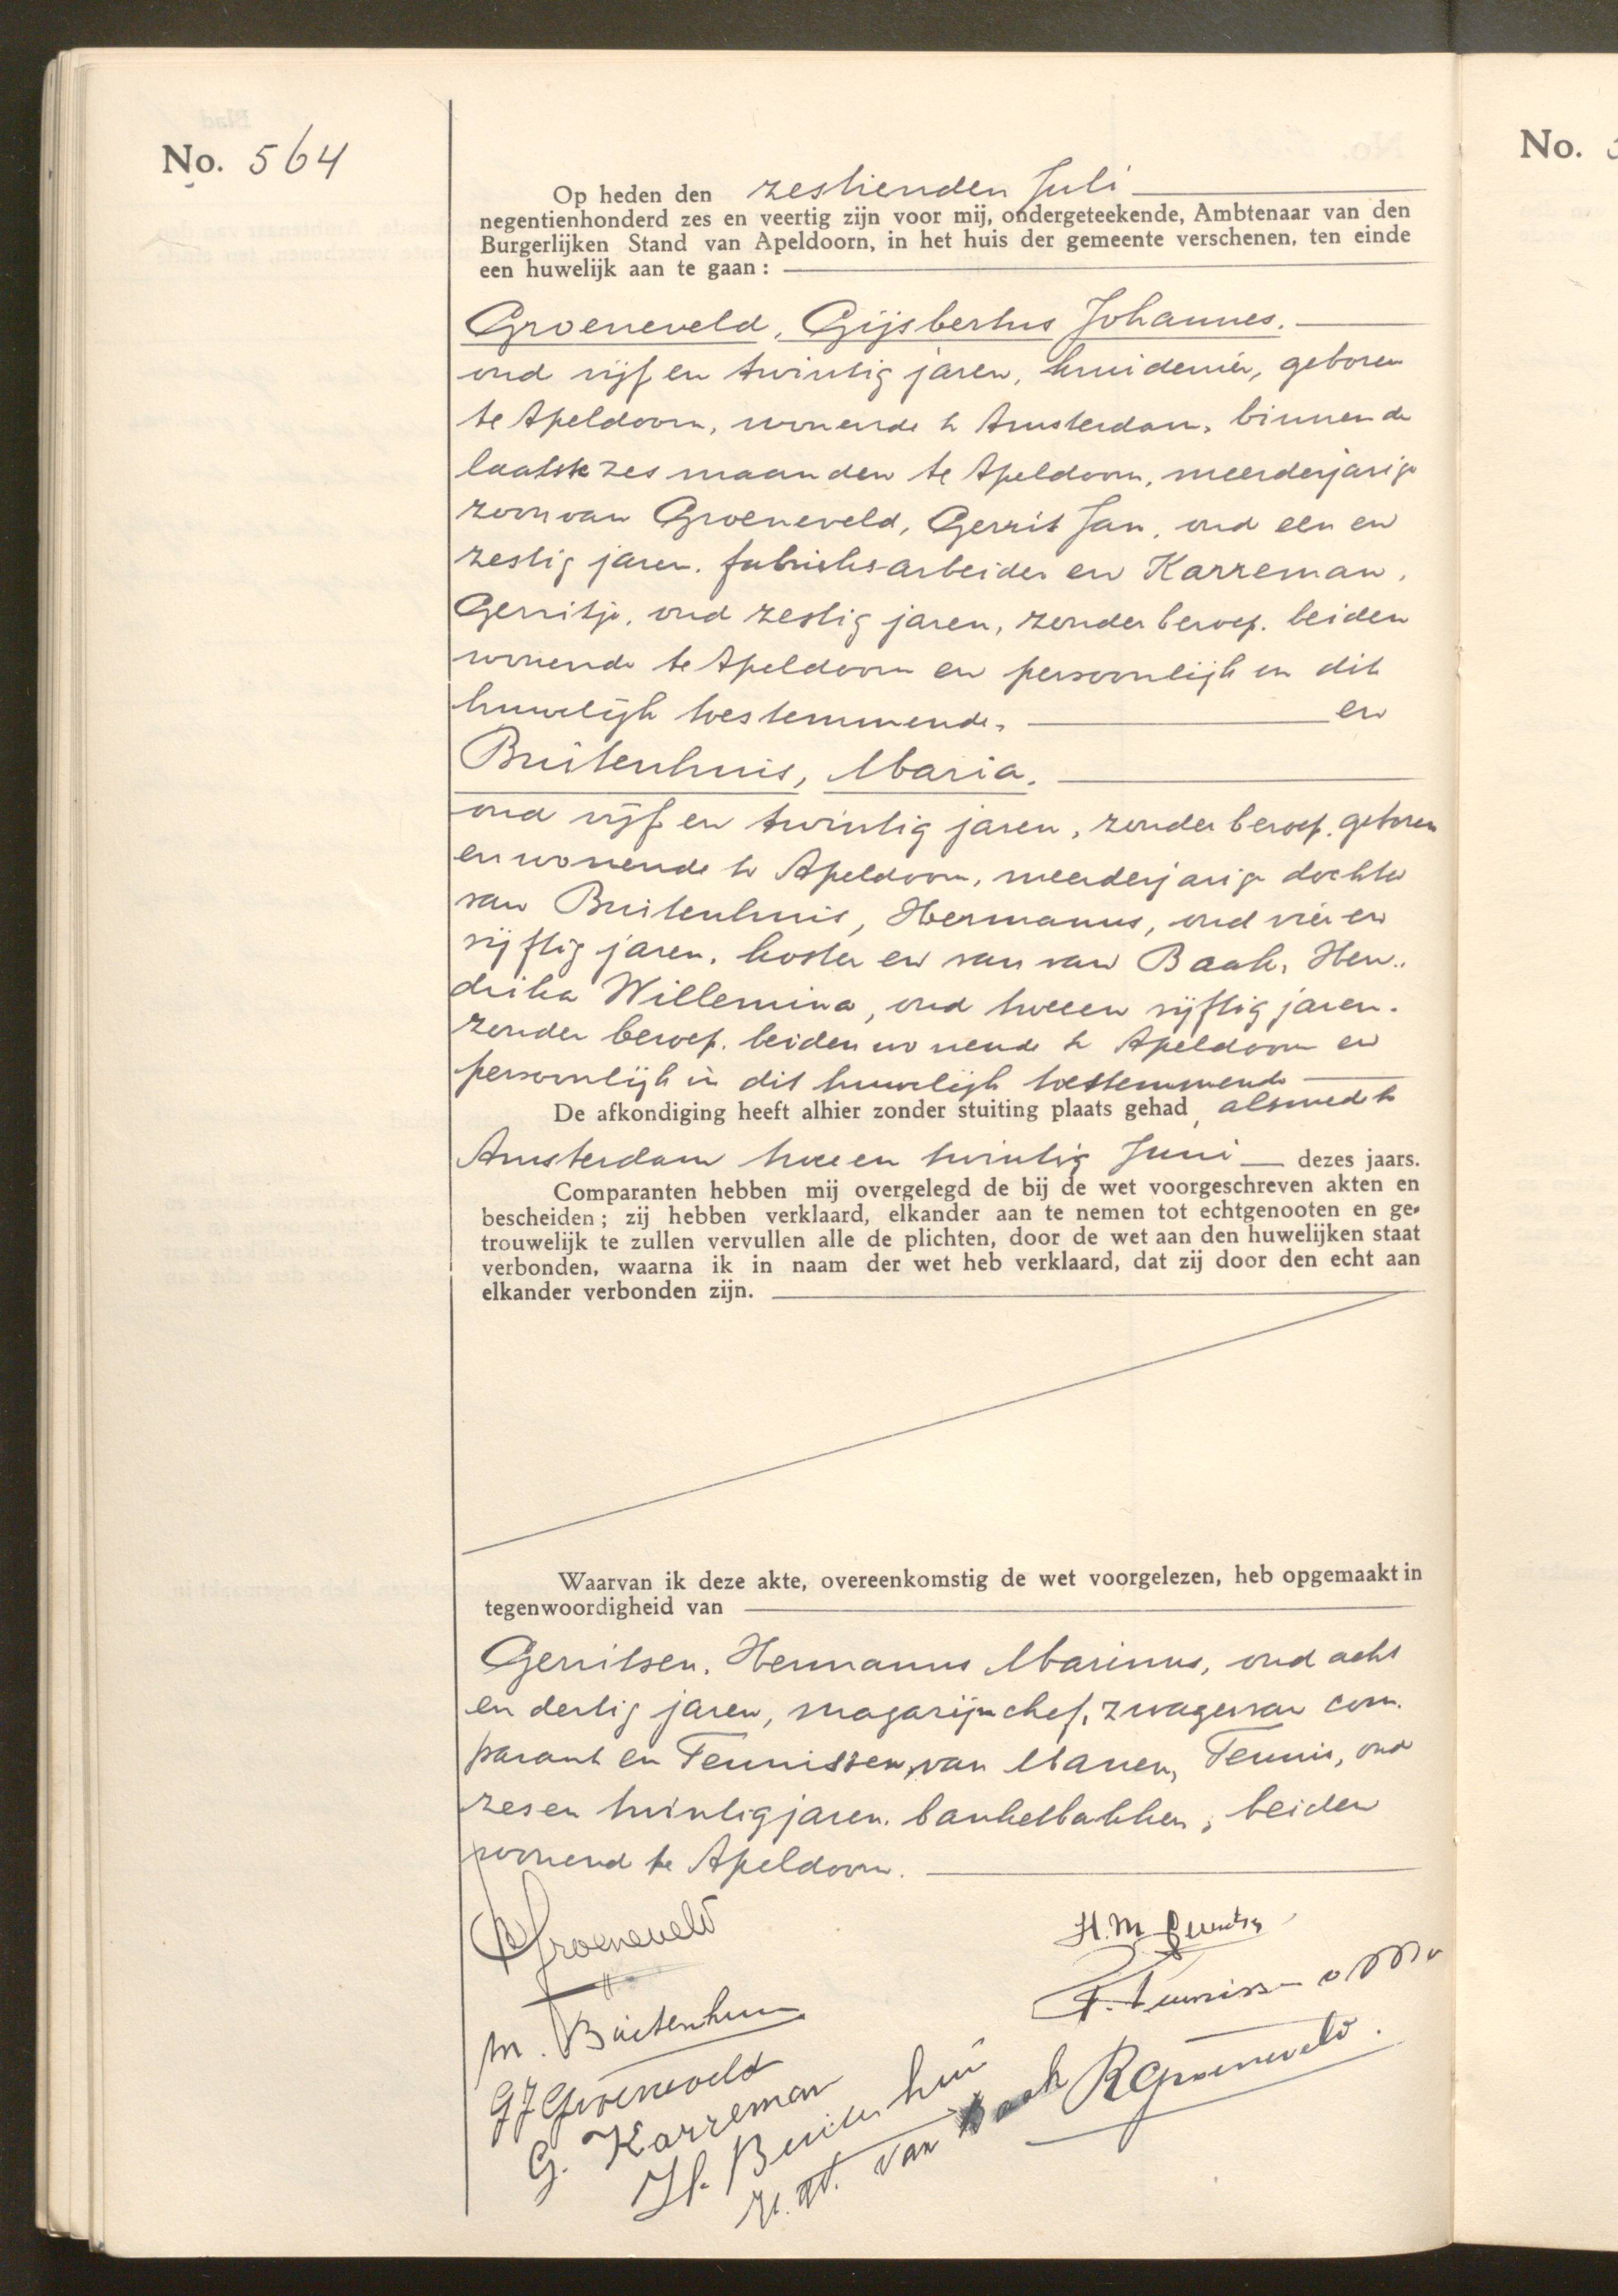 No. 564
No.
Op heden den zestienden Juli
negentienhonderd zes en veertig zijn voor mij, ondergeteekende, Ambtenaar van den
Burgerlijken Stand van Apeldoorn, in het huis der gemeente verschenen, ten einde
een huwelijk aan te gaan :
Groeneveld, Gijsbertus Johannes.
oud vijf en twintig jaren, kruidenier, geboren
te Apeldoorn, wonende te Amsterdam, binnen de
laatste zes maanden te Apeldoorn, meerderjarige
zoon van Groeneveld, Gerrit Jan, oud een en
zestig jaren, fabrieksarbeider en Karreman,
Gerritje, oud zestig jaren, zonder beroep, beiden
wonende te Apeldoorn en persoonlijk in dit
huwelijk toestemmende, en
Buitenhuis, Maria.
oud vijf en twintig jaren, zonder beroep, geboren
en wonende te Apeldoorn, meerderjarige dochter
van Buitenhuis, Hermanus, oud vier en
vijftig jaren, koster en van van Baak, Hen-
drika Willemina, oud twee en vijftig jaren,
zonder beroep, beiden wonende te Apeldoorn en
persoonlijk in dit huwelijk toestemmende
De afkondiging heeft alhier zonder stuiting plaats gehad, alsmede te
Amsterdam twee en twintig Juni dezes jaars.
Comparanten hebben mij overgelegd de bij de wet voorgeschreven akten en
bescheiden ; zij hebben verklaard, elkander aan te nemen tot echtgenooten en ge-
trouwelijk te zullen vervullen alle de plichten, door de wet aan den huwelijken staat
verbonden, waarna ik in naam der wet heb verklaard, dat zij door den echt aan
elkander verbonden zijn.
Waarvan ik deze akte, overeenkomstig de wet voorgelezen, heb opgemaakt in
tegenwoordigheid van
Gerritsen, Hermanus Marinus, oud acht
en dertig jaren, magazijnchef, zwager van com-
parant en Teunissen, van Manen, Teunis, oud
zes en twintig jaren, banketbakker, beiden
wonend te Apeldoorn.
Groeneveld
H. M.
T. Teunissen v M
M. Buitenhuis
G J Groeneveld
G. Karreman
H. Buitenhuis
H. W. van Baak
R Groeneveld.